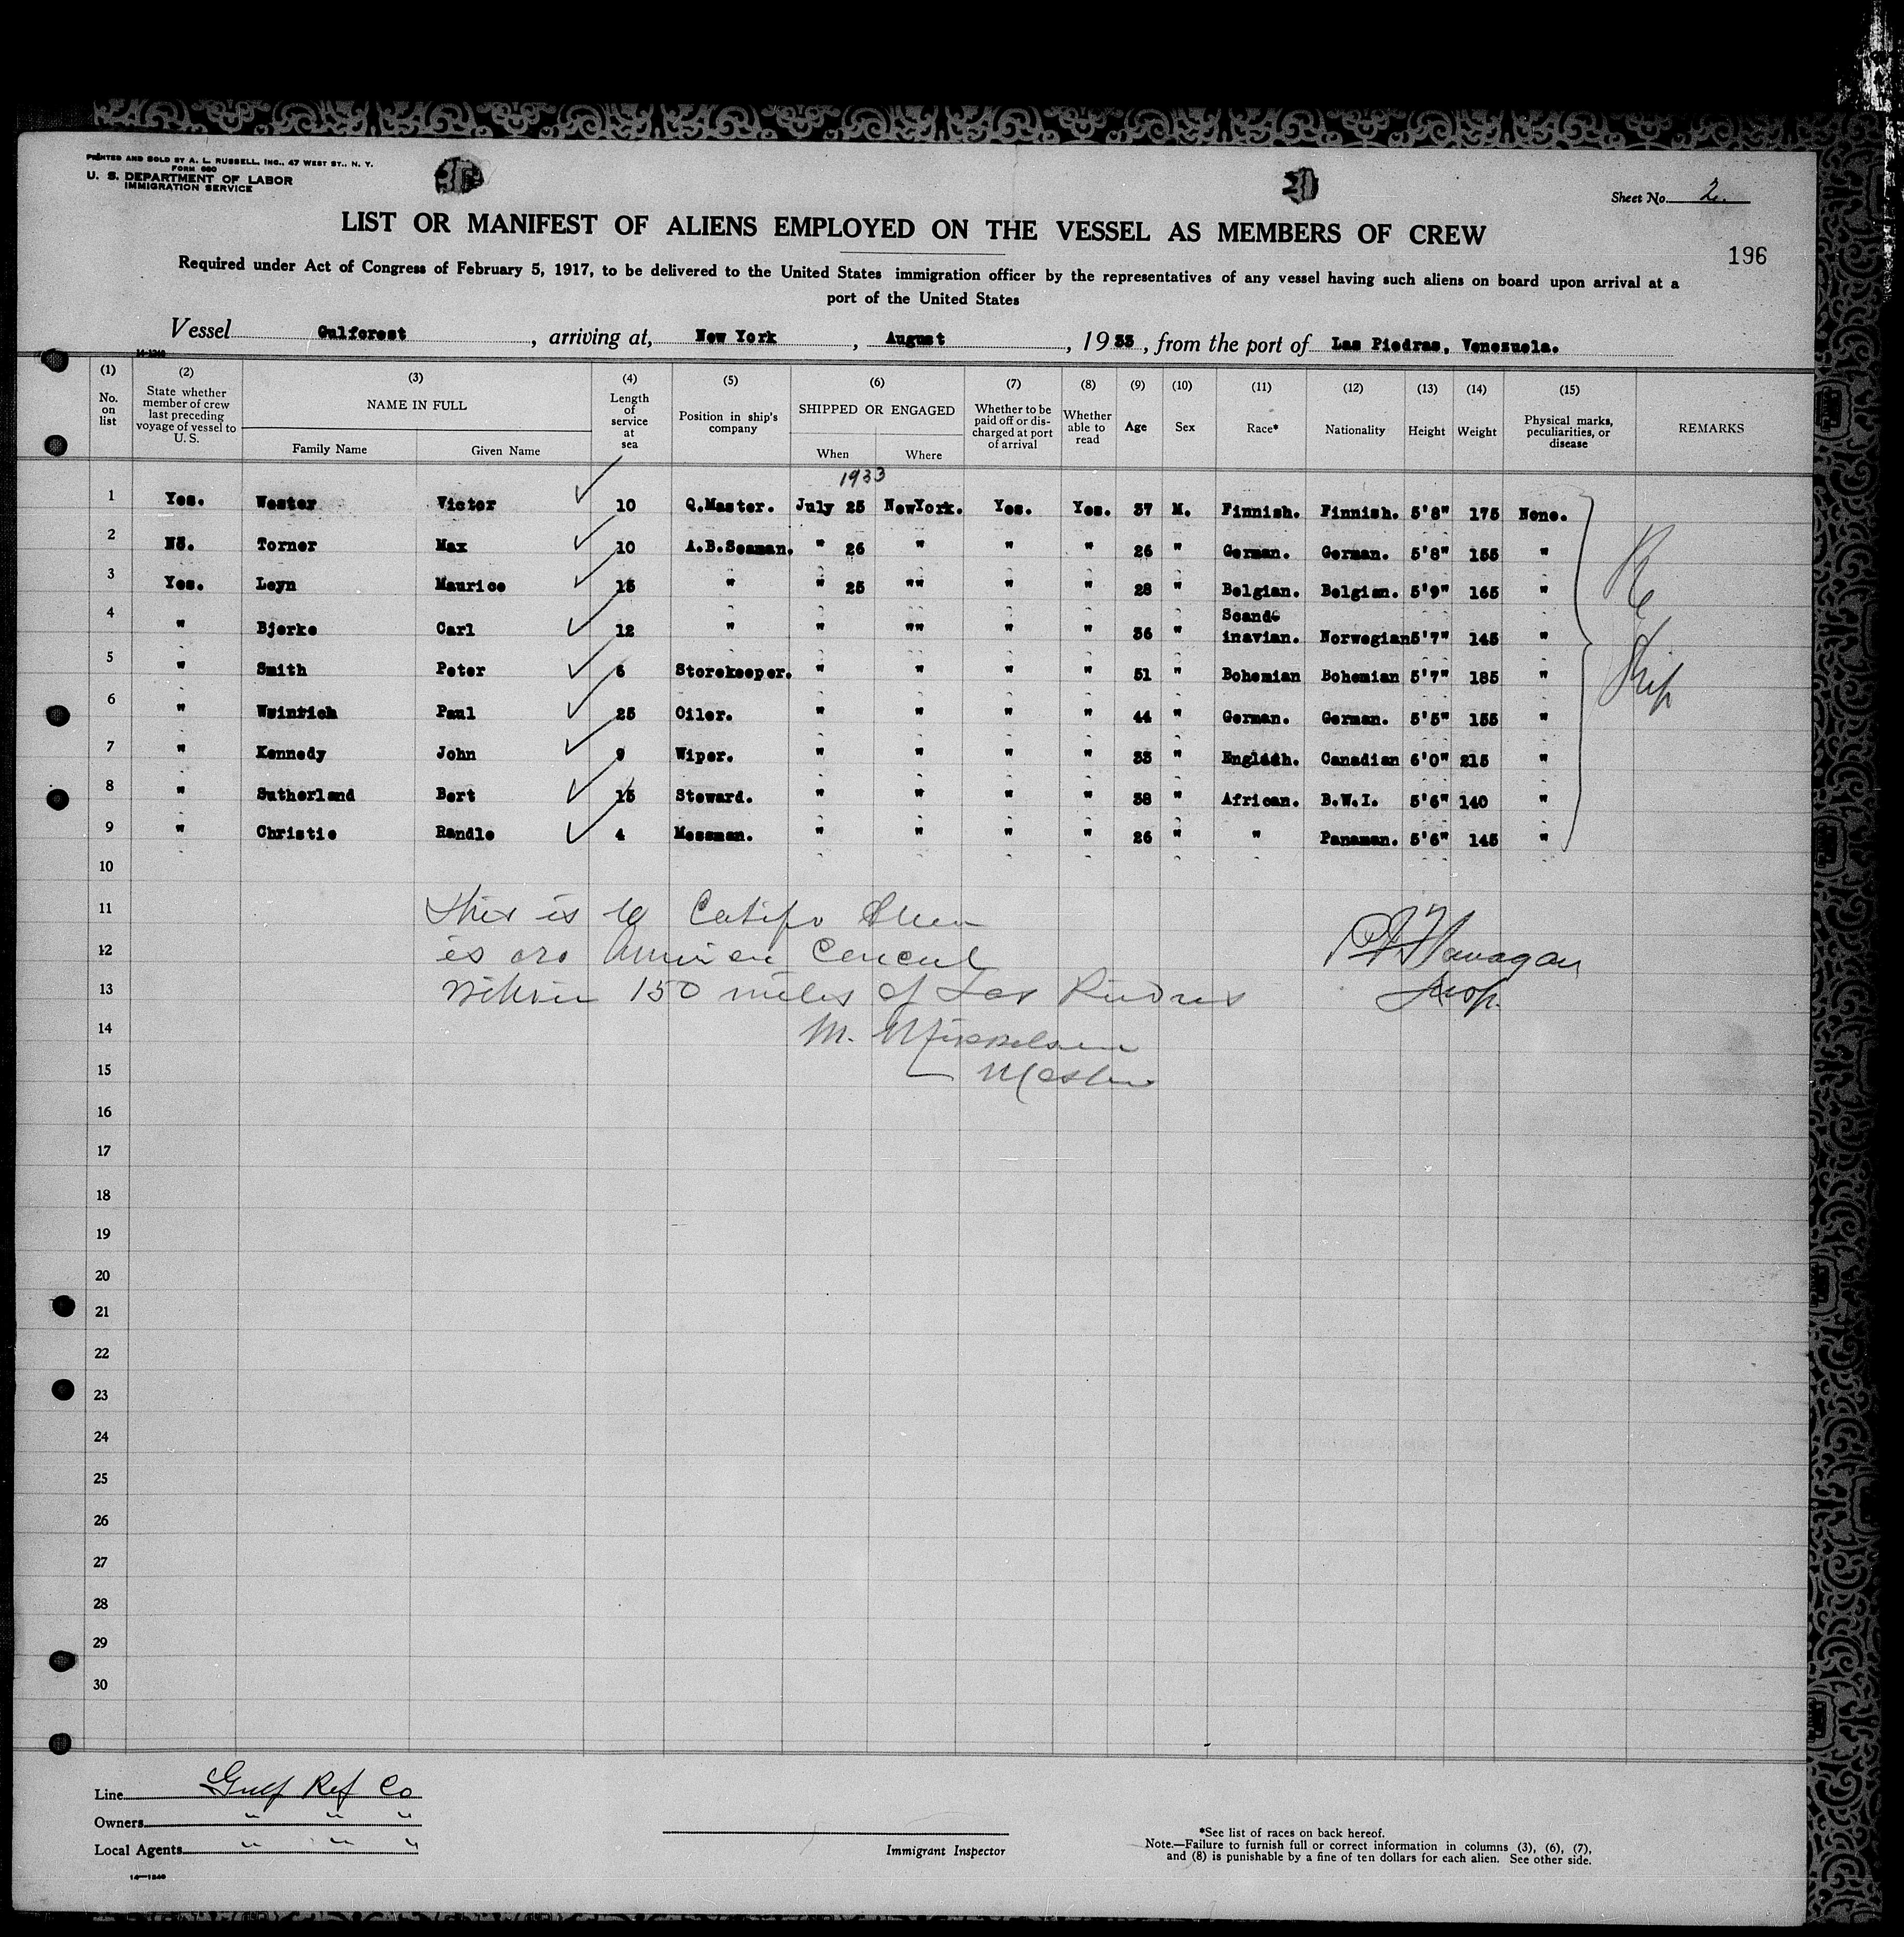 PRINTED AND SOLD BY A. L. RUSSELL, INC., 47 WEST ST., N. Y.
FORM 680
U. S. DEPARTMENT OF LABOR
IMMIGRATION SERVICE
Sheet No. 2.
LIST OR MANIFEST OF ALIENS EMPLOYED ON THE VESSEL AS MEMBERS OF CREW
196
Required under Act of Congress of February 5, 1917, to be delivered to the United States immigration officer by the representatives of any vessel having such aliens on board upon arrival at a
port of the United States
Vessel Gulfcrest, arriving at, New York, August, 1933, from the port of Las Piedras, Venezuela.
14-1240
(1) No. on list
(2) State whether member of crew last preceding voyage of vessel to U. S.
(3) NAME IN FULL
Family Name Given Name
(4) Length of service at sea
(5) Position in ship's company
(6) SHIPPED OR ENGAGED
When Where
(7) Whether to be paid off or discharged at port of arrival
(8) Whether able to read
(9) Age
(10) Sex
(11) Race*
(12) Nationality
(13) Height
(14) Weight
(15) Physical marks, peculiarities, or disease
REMARKS
1933
1 Yes. Wester Victor 10 Q.Master. July 25 NewYork. Yes. Yes. 37 M. Finnish. Finnish. 5'8" 175 None.
2 No. Torner Max 10 A.B.Seaman. " 26 " " " 26 " German. German. 5'8" 155 "
3 Yes. Leyn Maurice 15 " " 25 "" " " 28 " Belgian. Belgian. 5'9" 165 "
4 " Bjerke Carl 12 " " "" " " 36 " Scandinavian. Norwegian 5'7" 145 "
5 " Smith Peter 6 Storekeeper. " " " " 51 " Bohemian Bohemian 5'7" 185 "
6 " Weinrich Paul 25 Oiler. " " " " 44 " German. German. 5'5" 155 "
7 " Kennedy John 9 Wiper. " " " " 33 " English. Canadian 6'0" 215 "
8 " Sutherland Bert 15 Steward. " " " " 38 " African. B.W.I. 5'6" 140 "
9 " Christie Randle 4 Messman. " " " " 26 " " Panaman. 5'6" 145 "
Re
Ship
10
11 This is to
12 is
13 150 miles of Las Piedras
P Flanagan
Insp.
14 M. Mikkelsen
15 Master
16
17
18
19
20
21
22
23
24
25
26
27
28
29
30
Line Gulf Ref Co
Owners " " "
Local Agents " " "
14—1240
Immigrant Inspector
*See list of races on back hereof.
Note.—Failure to furnish full or correct information in columns (3), (6), (7),
and (8) is punishable by a fine of ten dollars for each alien. See other side.